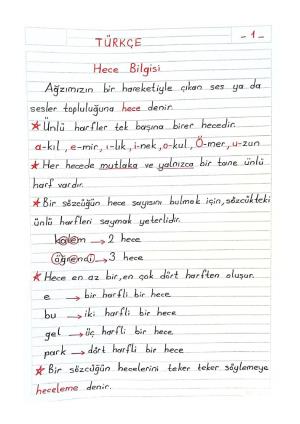 - 1 -
TÜRKÇE
Hece Bilgisi
Ağzımızın bir hareketiyle çıkan ses ya da
sesler topluluğuna hece denir.
★Ünlü harfler tek başına birer hecedir.
a-kıl, e-mir, ı-lık, i-nek, o-kul, Ö-mer, u-zun
★Her hecede mutlaka ve yalnızca bir tane ünlü
harf vardır.
★Bir sözcüğün hece sayısını bulmak için, sözcükteki
ünlü harfleri saymak yeterlidir.
kalem → 2 hece
öğrenci → 3 hece
★Hece en az bir, en çok dört harften oluşur.
e → bir harfli bir hece
bu → iki harfli bir hece
gel → üç harfli bir hece
park → dört harfli bir hece
★Bir sözcüğün hecelerini teker teker söylemeye
heceleme denir.